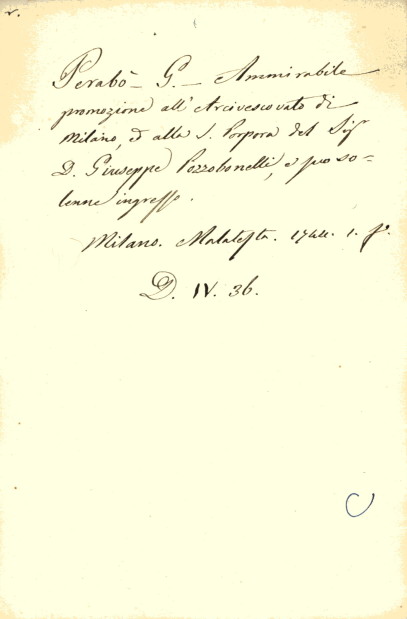 Perabò - G. - Ammirabile
promozione all' Arcivescovato di
Milano, e alla S. Porpora del Sig.r
D. Giuseppe Pozzobonelli, e suo so-
lenne ingresso.
Milano. Malatesta. 1744. 1. f.o
D. IV. 36.
C